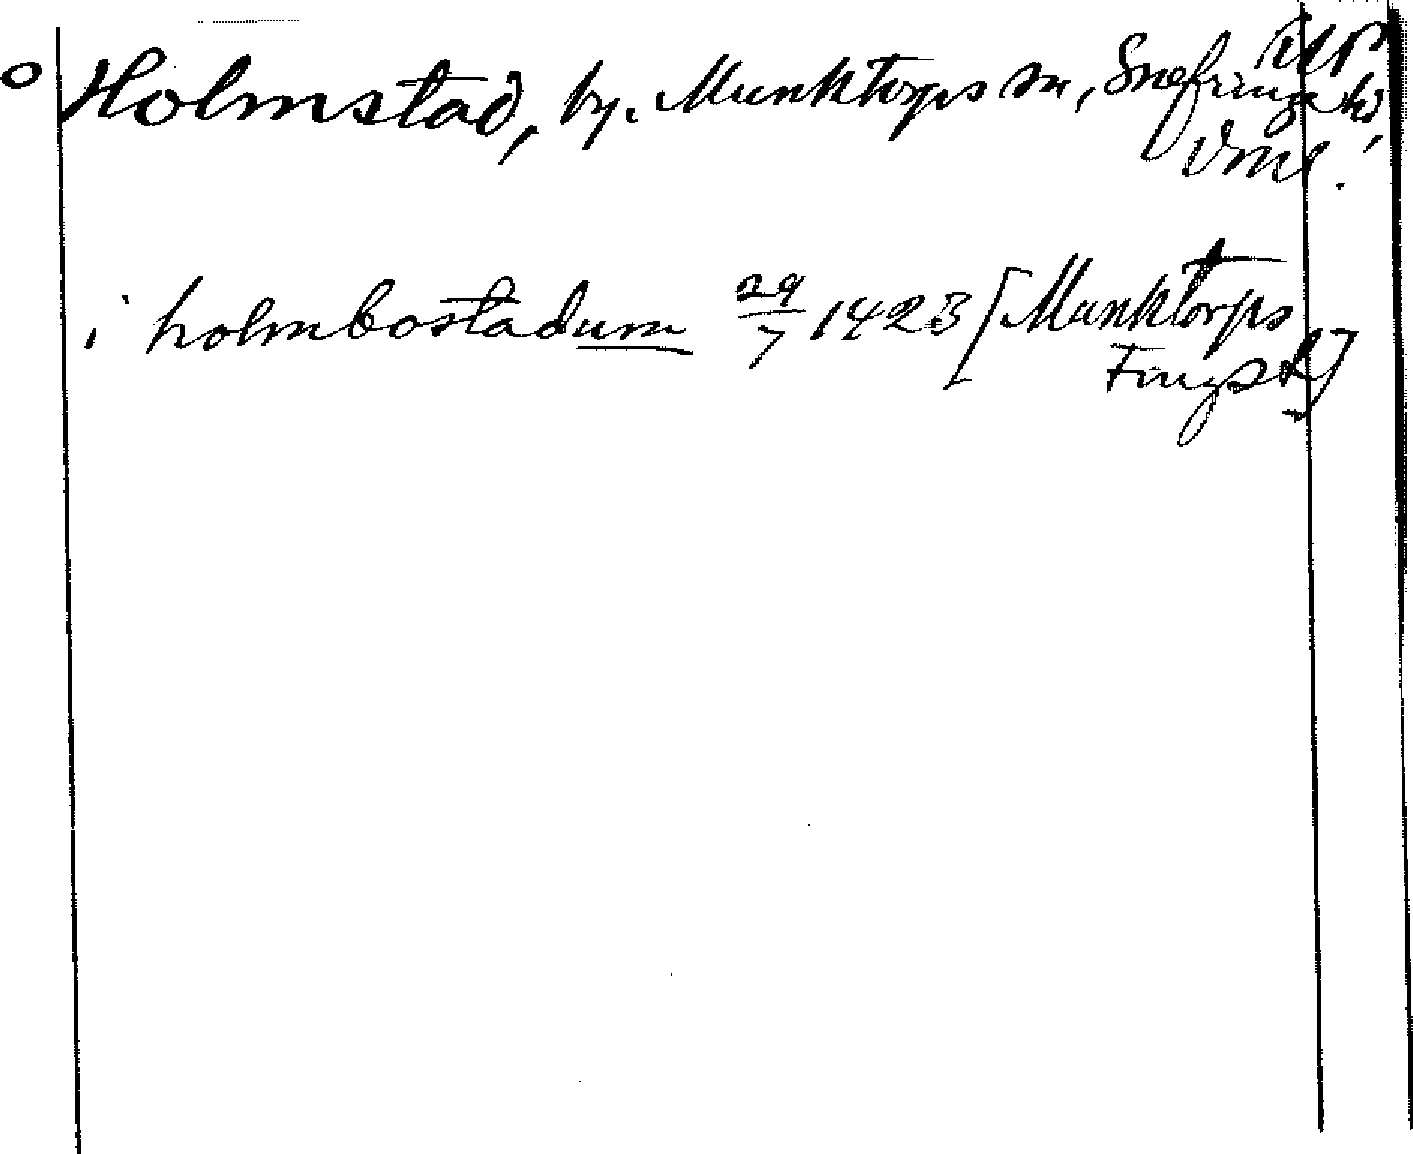 Holmstad, by. Munktorps sn, Snefringe hd,
Vml.
i holmbostadum 29/7 1423 [Munktorps
Tingst]